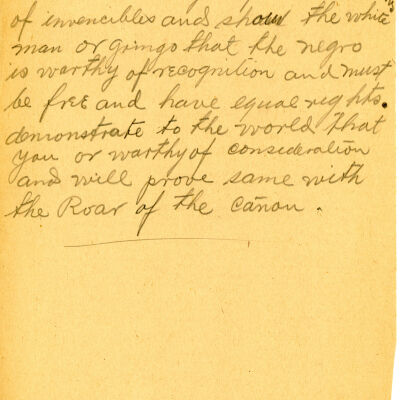 of invencibles and show the white
man or gringo that the negro
is worthy of recognition and must
be free and have equal rights.
demonstrate to the world that
you or worthy of consideration
and will prove same with
the Roar of the cañon.